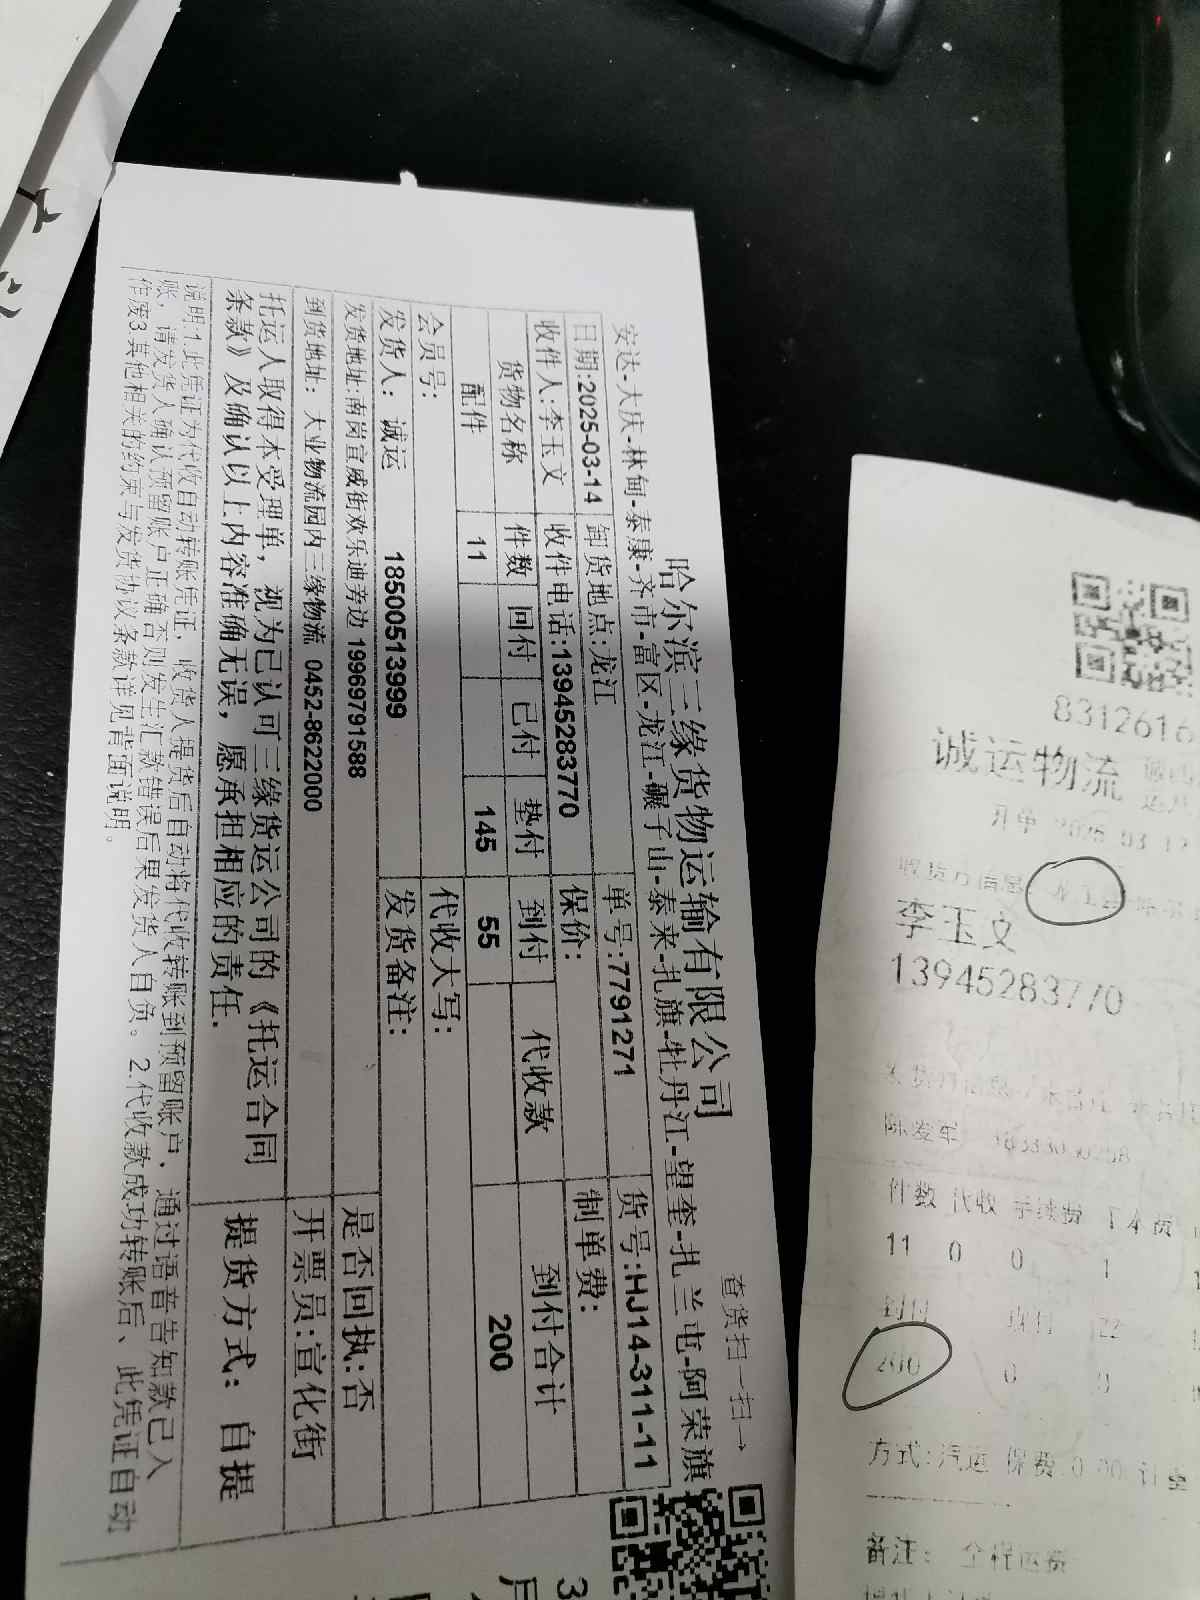 哈尔滨三缘货物运输有限公司
查货扫一扫→
安达-大庆-林甸-泰康-齐市-富区-龙江-碾子山-泰来-扎旗-牡丹江-望奎-扎兰屯-阿荣旗
日期:2025-03-14 卸货地点:龙江 单号:7791271 货号:HJ14-311-11
收件人:李玉文 收件电话:13945283770 保价: 制单费:
货物名称 件数 回付 已付 垫付 到付 代收款 到付合计
配件 11 145 55 200
会员号: 代收大写:
发货人: 诚运 18500513999 发货备注:
发货地址:南岗宣威街欢乐迪旁边 19969791588 是否回执:否
到货地址: 大业物流园内三缘物流 0452-8622000 开票员:宣化街
托运人取得本受理单,视为已认可三缘货运公司的《托运合同
条款》及确认以上内容准确无误,愿承担相应的责任. 提货方式:自提
说明:1.此凭证为代收自动转账凭证,收货人提货后自动将代收转账到预留账户,通过语音告知款已入
账,请发货人确认预留账户正确否则发生汇款错误后果发货人自负。2.代收款成功转账后、此凭证自动
作废3.其他相关的约束与发货协议条款详见背面说明。
8312616
诚运物流
开单
收货方信息
李玉文
13945283770
件数 代收 手续费
11 0 0 1
到付
200 0 0
方式:汽运 保费:0.00
备注: 全程运费